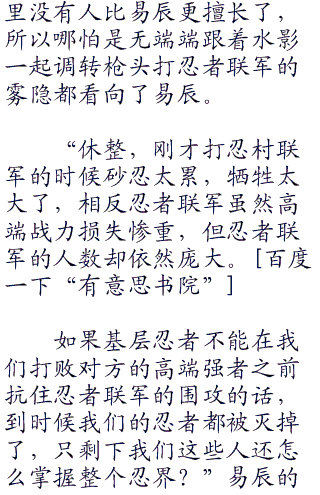 里没有人比易辰更擅长了，
所以哪怕是无端端跟着水影
一起调转枪头打忍者联军的
雾隐都看向了易辰。
“休整，刚才打忍村联
军的时候砂忍太累，牺牲太
大了，相反忍者联军虽然高
端战力损失惨重，但忍者联
军的人数却依然庞大。[百度
一下“有意思书院”]
如果基层忍者不能在我
们打败对方的高端强者之前
抗住忍者联军的围攻的话，
到时候我们的忍者都被灭掉
了，只剩下我们这些人还怎
么掌握整个忍界？”易辰的